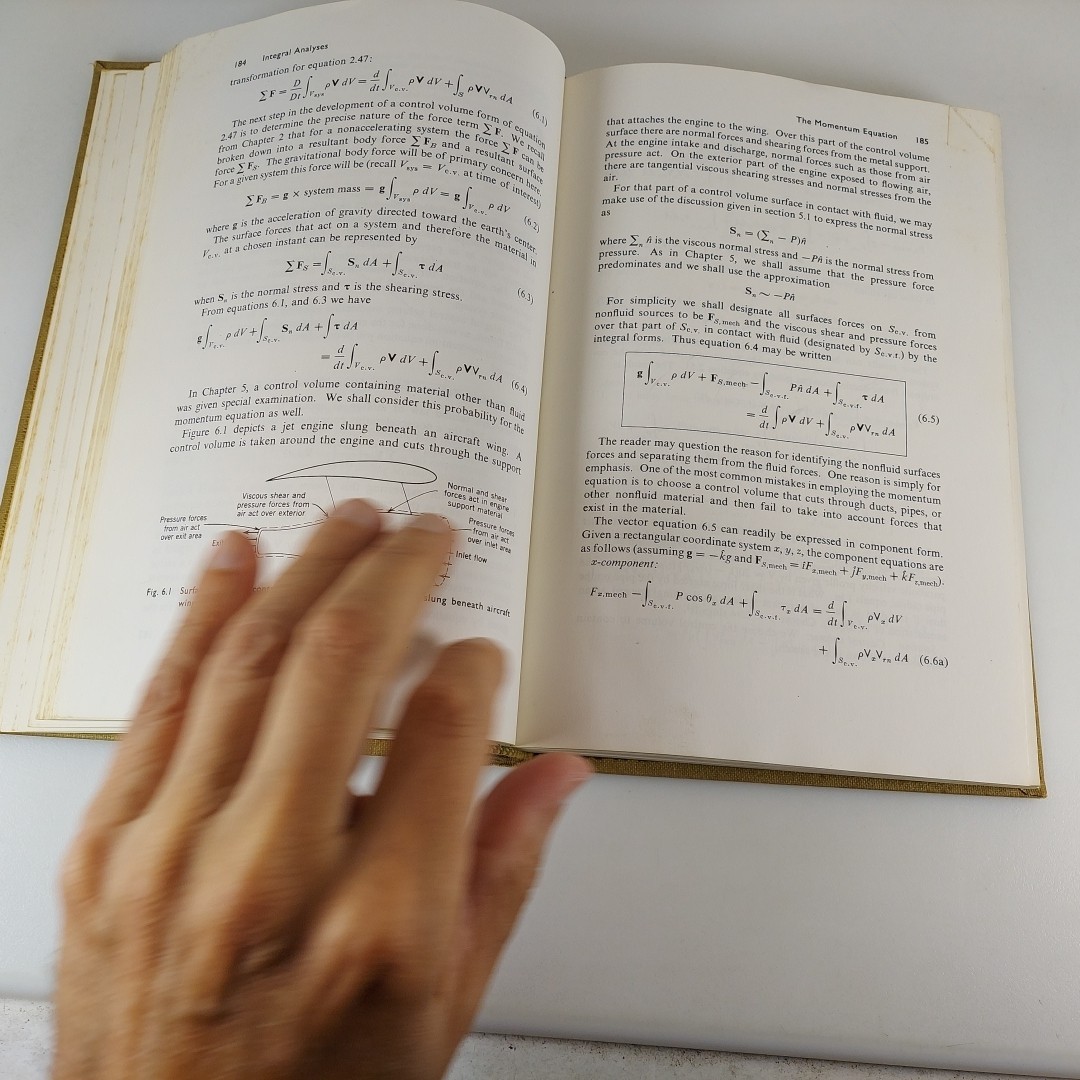 184 Integral Analyses
transformation for equation 2.47:
∑ F = D/Dt ∫_{V_sys} ρV dV = d/dt ∫_{V_c.v.} ρV dV + ∫_S ρVV_rn dA (6.1)
The next step in the development of a control volume form of equation
2.47 is to determine the precise nature of the force term ∑ F. We recall
from Chapter 2 that for a nonaccelerating system the force ∑ F can be
broken down into a resultant body force ∑ F_B and a resultant surface
force ∑ F_S. The gravitational body force will be of primary concern here.
For a given system this force will be (recall V_sys = V_c.v. at time of interest)
∑ F_B = g × system mass = g ∫_{V_sys} ρ dV = g ∫_{V_c.v.} ρ dV (6.2)
where g is the acceleration of gravity directed toward the earth's center.
The surface forces that act on a system and therefore the material in
V_c.v. at a chosen instant can be represented by
∑ F_S = ∫_{S_c.v.} S_n dA + ∫_{S_c.v.} τ dA (6.3)
when S_n is the normal stress and τ is the shearing stress.
From equations 6.1, and 6.3 we have
g ∫_{V_c.v.} ρ dV + ∫_{S_c.v.} S_n dA + ∫ τ dA
= d/dt ∫_{V_c.v.} ρV dV + ∫_{S_c.v.} ρVV_rn dA (6.4)
In Chapter 5, a control volume containing material other than fluid
was given special examination. We shall consider this probability for the
momentum equation as well.
Figure 6.1 depicts a jet engine slung beneath an aircraft wing. A
control volume is taken around the engine and cuts through the support
Viscous shear and
pressure forces from
air act over exterior
Normal and shear
forces act in engine
support material
Pressure forces
from air act
over exit area
Pressure forces
from air act
over inlet area
Inlet flow
Fig. 6.1
slung beneath aircraft
The Momentum Equation 185
that attaches the engine to the wing. Over this part of the control volume
surface there are normal forces and shearing forces from the metal support.
At the engine intake and discharge, normal forces such as those from air
pressure act. On the exterior part of the engine exposed to flowing air,
there are tangential viscous shearing stresses and normal stresses from the
air.
For that part of a control volume surface in contact with fluid, we may
make use of the discussion given in section 5.1 to express the normal stress
as
S_n = (∑_n − P)n̂
where ∑_n n̂ is the viscous normal stress and −Pn̂ is the normal stress from
pressure. As in Chapter 5, we shall assume that the pressure force
predominates and we shall use the approximation
S_n ∼ −Pn̂
For simplicity we shall designate all surfaces forces on S_c.v. from
nonfluid sources to be F_S,mech and the viscous shear and pressure forces
over that part of S_c.v. in contact with fluid (designated by S_c.v.f.) by the
integral forms. Thus equation 6.4 may be written
g ∫_{V_c.v.} ρ dV + F_S,mech − ∫_{S_c.v.f.} Pn̂ dA + ∫_{S_c.v.f.} τ dA
= d/dt ∫ ρV dV + ∫_{S_c.v.} ρVV_rn dA (6.5)
The reader may question the reason for identifying the nonfluid surfaces
forces and separating them from the fluid forces. One reason is simply for
emphasis. One of the most common mistakes in employing the momentum
equation is to choose a control volume that cuts through ducts, pipes, or
other nonfluid material and then fail to take into account forces that
exist in the material.
The vector equation 6.5 can readily be expressed in component form.
Given a rectangular coordinate system x, y, z, the component equations are
as follows (assuming g = −k̂g and F_S,mech = îF_x,mech + ĵF_y,mech + k̂F_z,mech).
x-component:
F_x,mech − ∫_{S_c.v.f.} P cos θ_x dA + ∫_{S_c.v.f.} τ_x dA = d/dt ∫_{V_c.v.} ρV_x dV
+ ∫_{S_c.v.} ρV_xV_rn dA (6.6a)